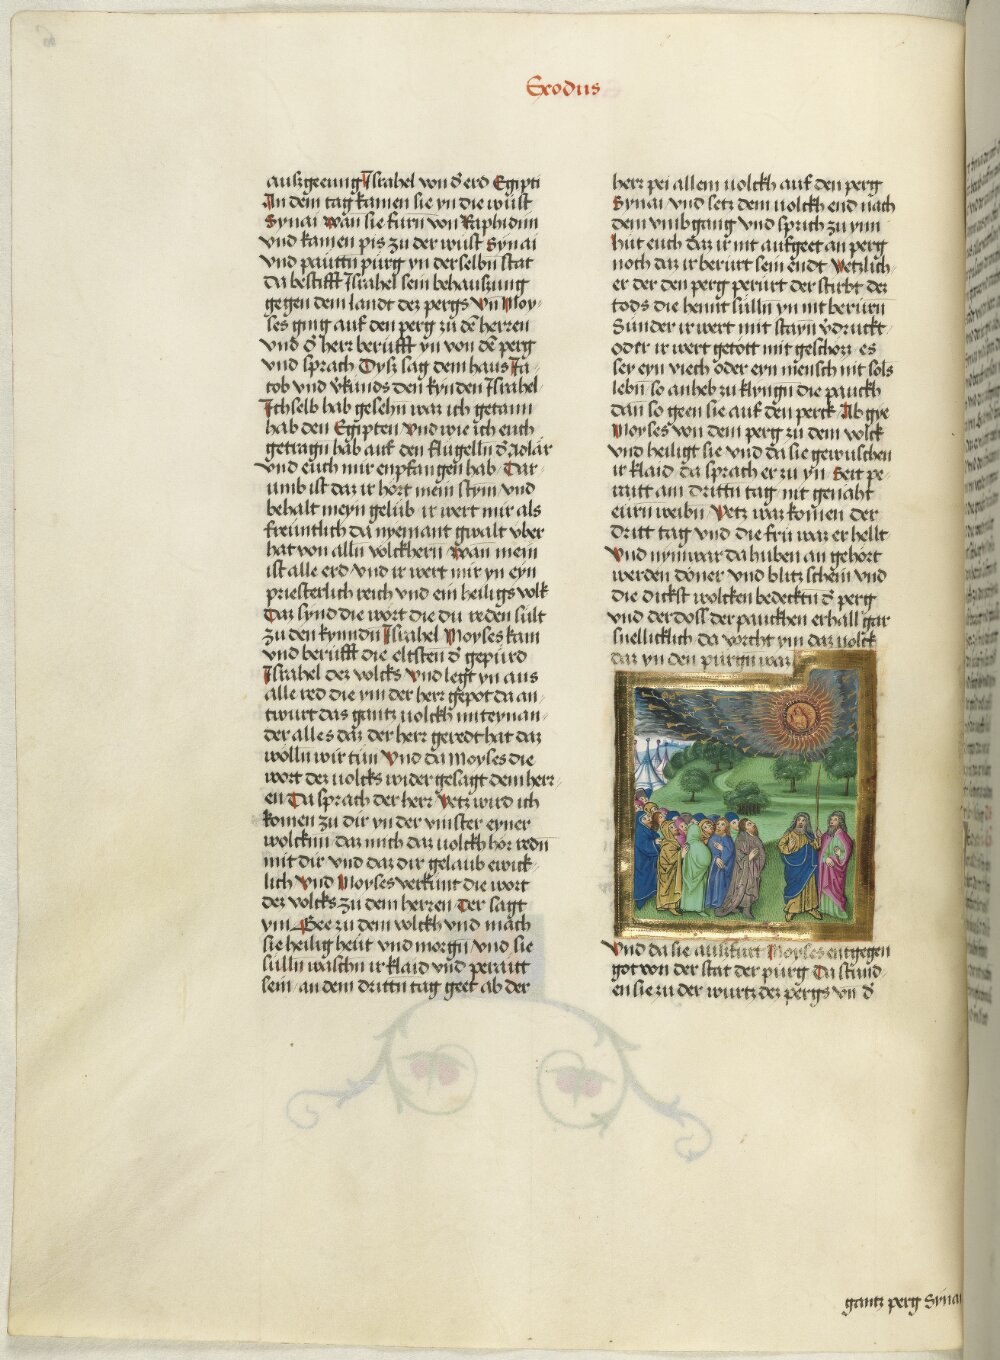 Exodus
auszgeeung Israhel von d̄ erd Egipti
In dem tag kamen sie yn die wüst
Synai wan sie furn von Raphidim
vnd kamen pis zu der wüst Synai
vnd pauttn purg yn derselbn stat
da bestifft Israhel sein behauszung
gegen dem landt dez pergs Vn̄ Moy-
ses ging auf den perg zu dē herren
vnd d̄ herr berufft yn von dē perg
vnd sprach Dysz sag dem haus Ja-
cob vnd v̄kunds den kynden Israhel
Ich selb hab gesehn waz ich getann
hab den Egipten vnd wie ich euch
getragn hab auf den flugelln d̄ Adlar
vnd euch mir enpfangen hab Dar-
umb ist daz ir hort mein stym vnd
behalt meyn gelüb ir wert mir als
freuntlich da nyemant gwalt vber
hat von alln volckhern wan mein
ist alle erd vnd ir wert mir yn eyn
priesterlich reich vnd ein heiligs volk
Daz synd die wort die du reden sült
zu den kynndn Israhel Moyses kam
vnd berufft die eltsten d̄ gepurd
Israhel dez volcks vnd legt yn aus
alle red die ym der herr gepot da an-
twurt das gantz uolckh miteynan-
der alles daz der herr geredt hat daz
wölln wir tün Vnd da Moyses die
wort dez uolcks wider gesagt dem herr-
en Da sprach der herr Yetz wird ich
komen zu dir yn der vinster eyner
wolcknn daz mich daz uolckh hör redn
mit dir vnd daz dir gelaub ewick-
lich Vnd Moyses verkunt die wort
dez volcks zu dem herren Der sagt
ym Gee zu dem volckh vnd mach
sie heilig heut vnd morgn vnd sie
sülln waschn ir klaid vnd peraitt
sein an dem drittn tag geet ab der
herr pei allem uolckh auf den perg
Synai vnd setz dem uolckh end nach
dem vmbgang vnd sprich zu ynn
hüt euch daz ir nit aufgeet an perg
noch daz ir berurt sein endt Yetzlich-
er der den perg perurt der stirbt dez
tods die hennt sülln yn nit berurn
Sunder ir wert mit stayn v̄druckt
oder ir wert getött mit geschozz es
sey eyn viech oder eyn mensch nit sols
lebn so anheb zu klyngn die pauckh
dan so geen sie auf den perck Ab gye
Moyses von dem perg zu dem volck
vnd heiligt sie vnd da sie gewuschen
ir klaid da sprach er zu yn Seit pe-
raitt am drittn tag nit genaht
eurn weibn Yetz waz komen der
dritt tag vnd die frü waz er hellt
Vnd nymwar da huben an gehört
werden döner vnd blitz schein vnd
die dickst wolcken bedecktn d̄ perg
vnd der doss der pauckhen erhall gar
snellicklich da vorcht ym daz uolck
daz yn den purgn waz
Vnd da sie ausfurt Moyses entgegen
got von der stat der purg Da stund-
en sie zu der wurtz dez pergs vn̄ d̄
gantz perg Synai